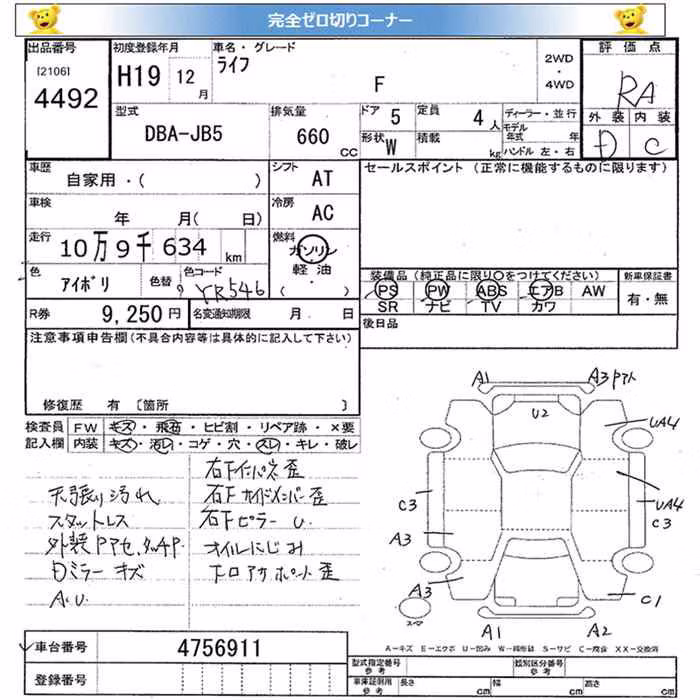 完全ゼロ切りコーナー
出品番号
[2106]
4492
初度登録年月
H19 12 月
車名・グレード
ライフ
F
2WD
・
4WD
評価点
RA
外装 内装
D C
型式
DBA-JB5
排気量
660 CC
ドア 5
定員 4 人
形状 W
積載 kg
ディーラー・並行
モデル年式 年
ハンドル 左・右
車歴
自家用・( )
シフト
AT
セールスポイント (正常に機能するものに限ります)
車検
年 月( 日)
冷房
AC
走行
10万9千634 km
燃料
ガソリン
軽油
( )
色
アイボリ
色替
色コード
YR546
装備品 (純正品に限り○をつけてください)
PS PW ABS エアB AW
SR ナビ TV カワ
新車保証書
有・無
R券
9,250円
名変通知期限 月 日
後日品
注意事項申告欄 (不具合内容等は具体的に記入して下さい)
修復歴 有 [箇所 ]
検査員記入欄
FW キズ・飛石・ヒビ割・リペア跡・×要
内装 キズ・汚レ・コゲ・穴・スレ・キレ・破レ
天張り汚れ
スタットレス
外装PアセタッチP.
Dミラーキズ
A.U.
右Fインパネ歪
右Fサイドメンバー歪
右Fピラーu.
オイルにじみ
A1
A3 Pアト
U2
UA4
C3
UA4
C3
A3
A3
C1
A1
A2
スマ
A-キズ E-エクボ U-凹み W-補修波 S-サビ C-腐食 XX-交換済
車台番号
4756911
登録番号
型式指定番号
参考
類別区分番号
参考
車庫証明用
参考
長さ cm
幅 cm
高さ cm